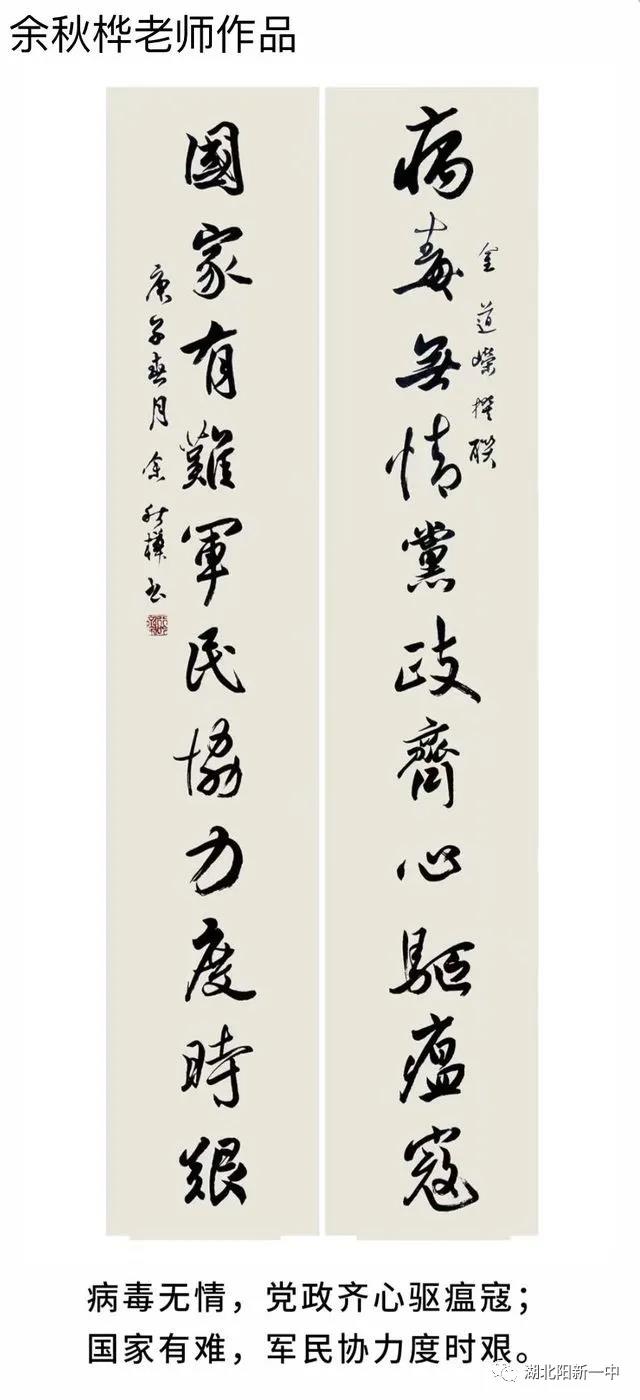 余秋桦老师作品
病毒無情黨政齊心驅瘟寇
金道嶸撰联
國家有難軍民協力度時艱
庚子春月余秋樺书
病毒无情，党政齐心驱瘟寇；
国家有难，军民协力度时艰。
湖北阳新一中